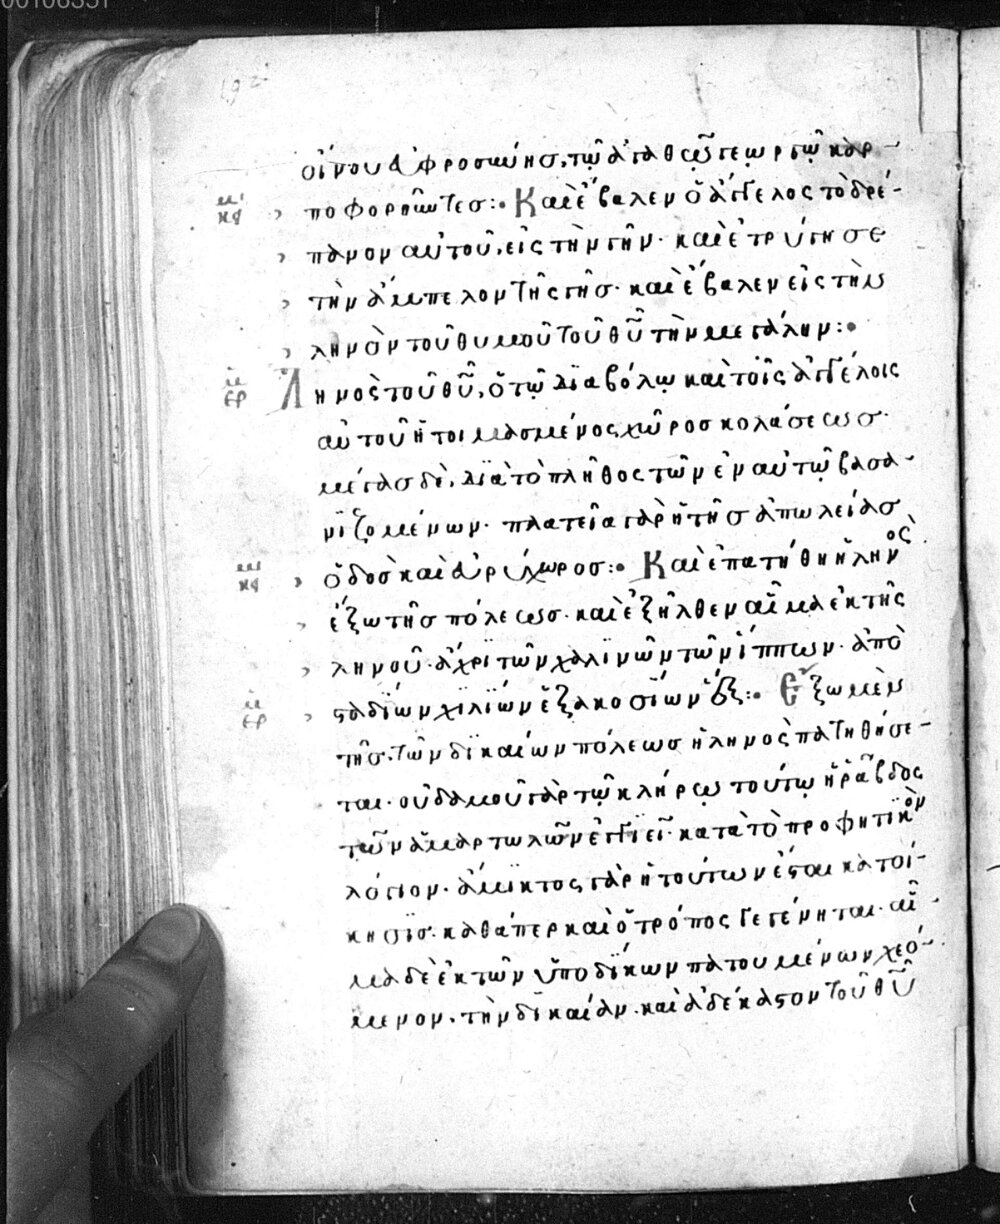 00106331
192
οἴνου ἀφροσύνησ, τῷ ἀγαθῷ γεωργῷ καρ-
κμ ποφοροῦντεσ:· Καὶ ἔβαλεν ὁ ἄγγελος τὸ δρέ-
πανον αὐτοῦ, εἰς τὴν γῆν· καὶ ἐτρύγησε
τὴν ἄμπελον τῆς γῆσ· καὶ ἔβαλεν εἰς τὴν
ληνὸν τοῦ θυμοῦ τοῦ θῦ τὴν μεγάλην:·
ἑρ Ληνὸς τοῦ θῦ, ὁ τῷ διαβόλῳ καὶ τοῖς ἀγγέλοις
αὐτοῦ ἡτοιμασμένος χῶροσ κολάσεωσ·
μέγασ δὲ, διὰ τὸ πλῆθος τῶν ἐν αὐτῷ βασα-
νιζομένων· πλατεῖα γὰρ ἡ τῆσ ἀπωλείασ
κμ ὁδὸσ καὶ εὐρύχωροσ:· Καὶ ἐπατήθη ἡ ληνὸς
ἔξω τῆσ πόλεωσ· καὶ ἐξῆλθεν αἷμα ἐκ τῆς
ληνοῦ· ἄχρι τῶν χαλινῶν τῶν ἵππων· ἀπὸ
ἑρ σταδίων χιλίων ἑξακοσίων :· Ἔξω μὲν
τῆσ τῶν δικαίων πόλεωσ ἡ ληνὸς πατηθήσε-
ται· οὐδαμοῦ γὰρ τῷ κλήρῳ τούτῳ ἡ ῥάβδος
τῶν ἁμαρτωλῶν ἐγγιεῖ· κατὰ τὸ προφητικὸν
λόγιον· ἄμικτος γὰρ ἡ τούτων ἔσται κατοί-
κησισ· καθάπερ καὶ ὁ τρόπος γεγένηται· αἷ-
μα δὲ ἐκ τῶν ὑποδίκων πατουμένων χεό-
μενον· τὴν δικαίαν· καὶ ἀδέκαστον τοῦ θῦ